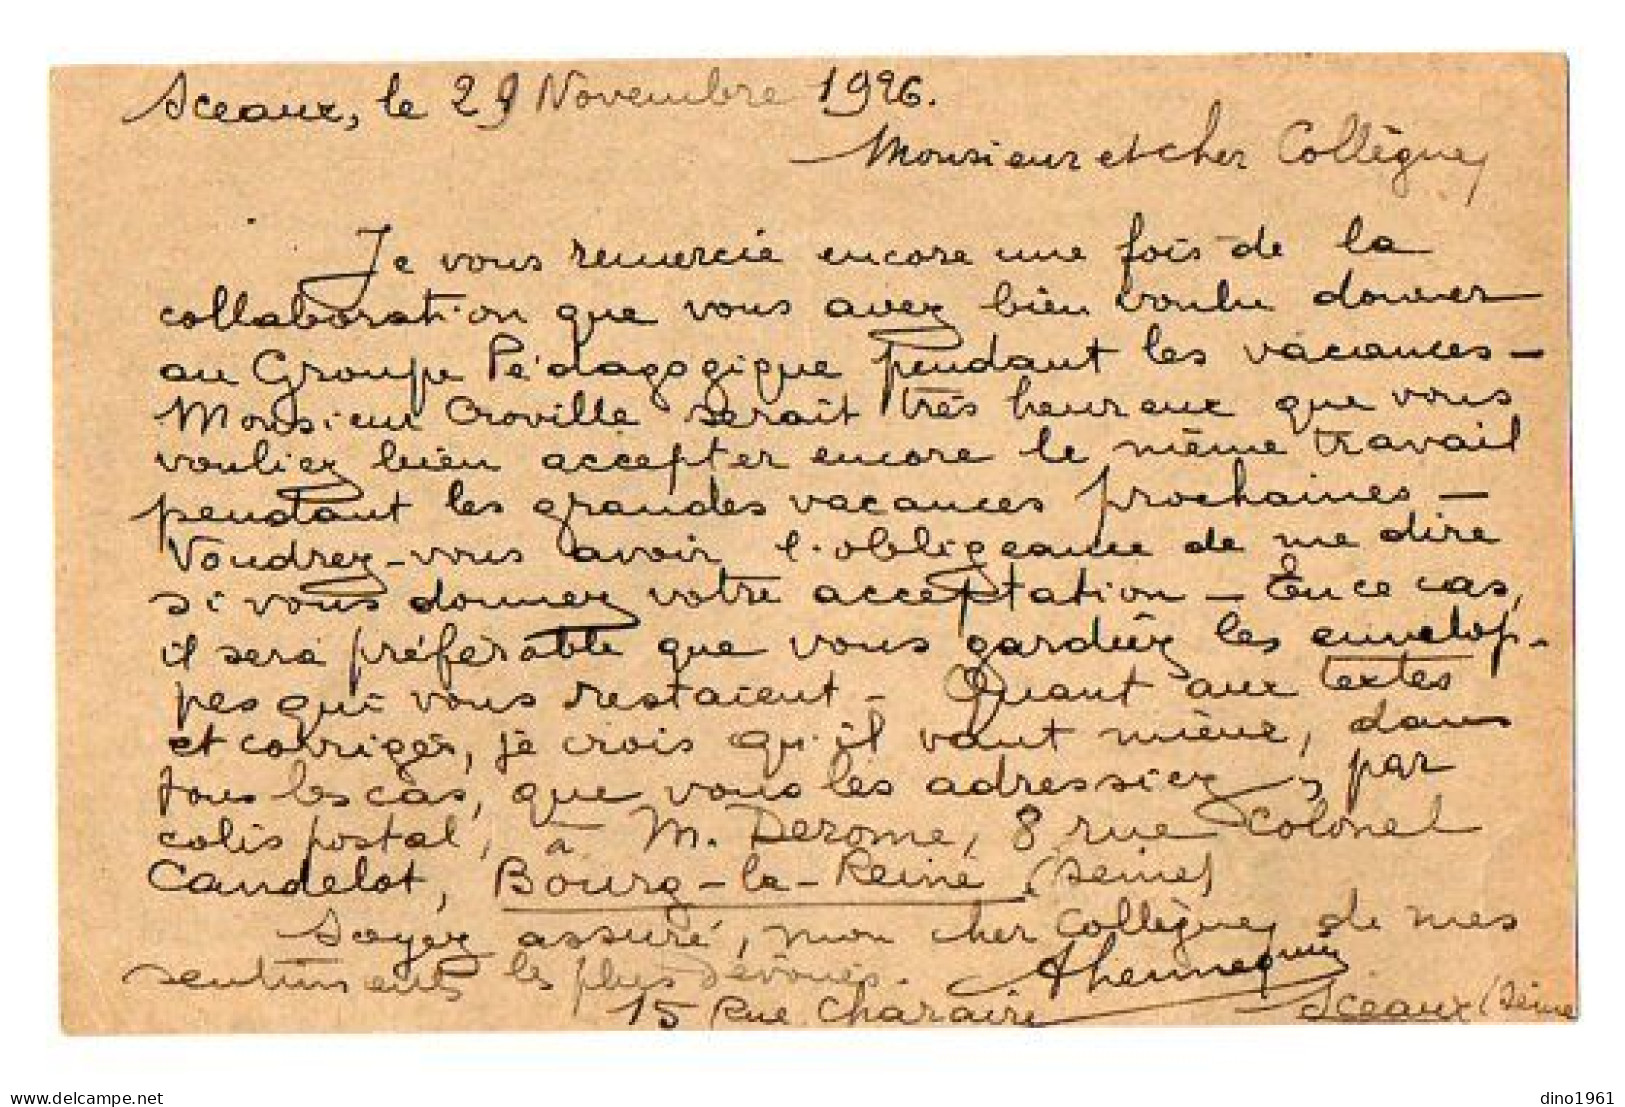 Sceaux, le 29 Novembre 1926.
Monsieur et cher Collègue,
Je vous remercie encore une fois de la
collaboration que vous avez bien voulu donner
au Groupe Pédagogique pendant les vacances —
Monsieur Croville serait très heureux que vous
vouliez bien accepter encore le même travail
pendant les grandes vacances prochaines —
Voudrez-vous avoir l'obligeance de me dire
si vous donnez votre acceptation — En ce cas,
il sera préférable que vous gardiez les envelop-
pes qui vous restaient — Quant aux textes
et corrigés, je crois qu'il vaut mieux, dans
tous les cas, que vous les adressiez, par
colis postal, à M. Derome, 8 rue Colonel
Candelot, Bourg-la-Reine (Seine)
Soyez assuré, mon cher collègue, de mes
sentiments les plus dévoués.
15 Rue Charaire Sceaux (Seine
Delcampe.net
dino1961